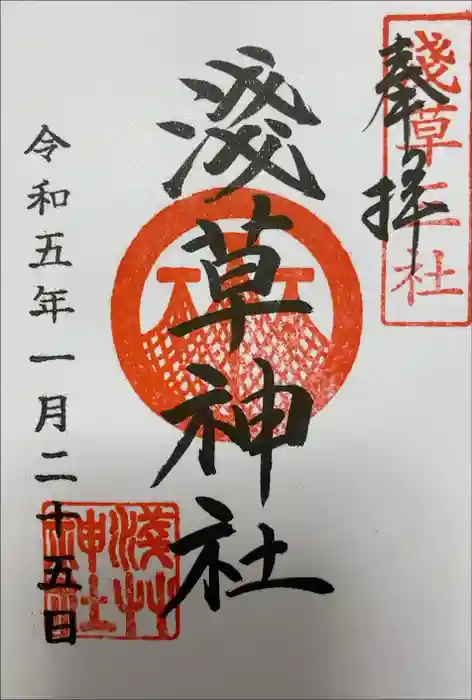 奉拝
淺草三社
淺草神社
令和五年一月二十五日
淺草神社